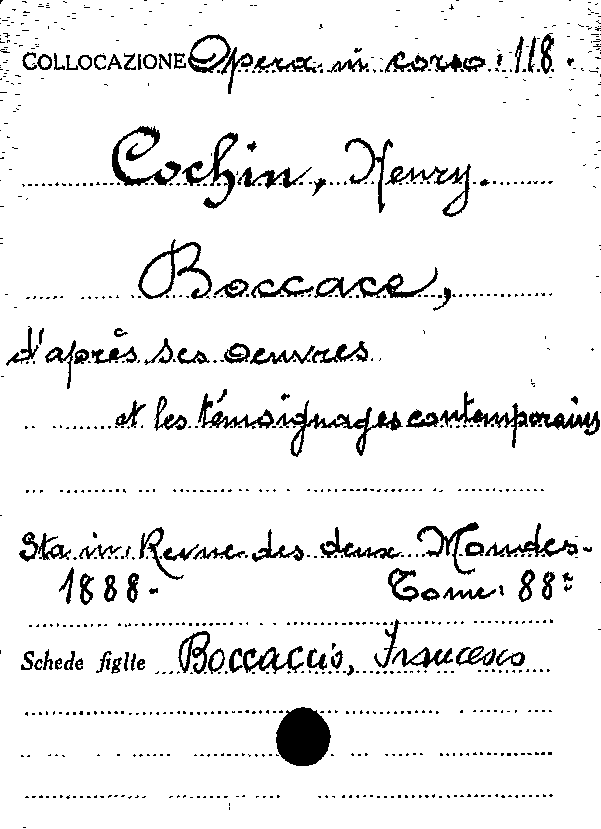 COLLOCAZIONE Opera in corso: 118.
Cochin, Henry.
Boccace,
d'après ses oeuvres
et les témoignages contemporains
Sta in: Revue des deux Mondes-
1888- Tome: 88:
Schede figlie Boccaccio, Francesco